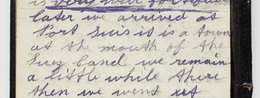 is very well for
later we arrived at
Port Suis it is a town
at the mouth of the
Suey Canal we remain
a little while there
then we went